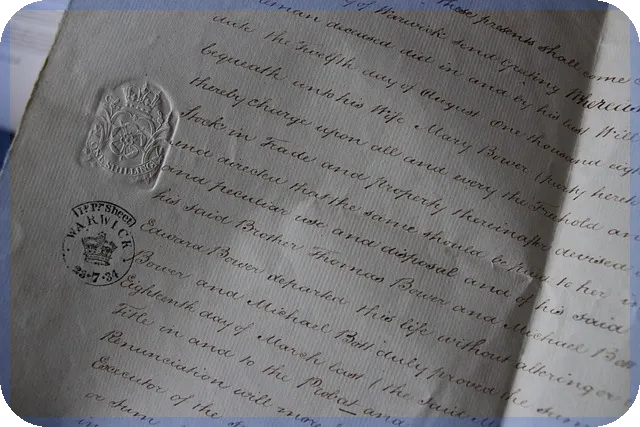 of Warwick send greeting Whereas
deceased did in and by his last Will
date the Twelfth day of August one thousand eigh
bequeath unto his Wife Mary Bower (party here
thereby charge upon all and every the Freehold an
Stock in Trade and property thereinafter devised
and directed that the same should be paid to her
and peculiar use and disposal and of his said
his said Brother Thomas Bower and Michael Bott
Edward Bower departed this life without altering or
Bower and Michael Bott duly proved the same
Eighteenth day of March last (the said
Title in and to the Probat and
Renunciation will more
Executor of the
or sum
ONE SHILLING
1d Pr Sheet
WARWICK
25·7·34